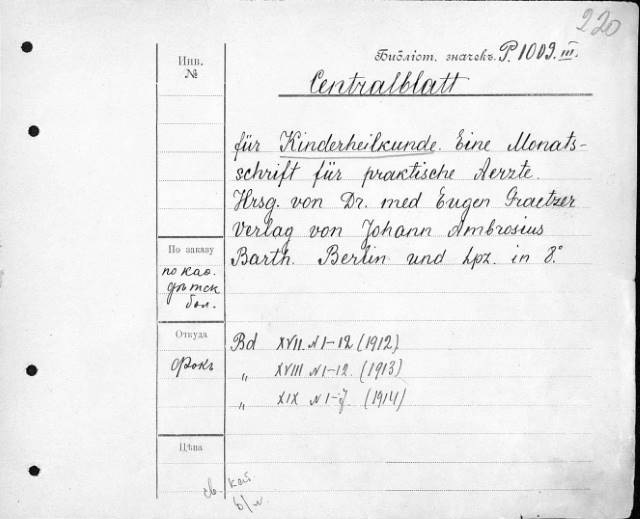 220
Инв. №
Библіот. значекъ. P. 1009. III.
Centralblatt
für Kinderheilkunde. Eine Monats-
schrift für praktische Aerzte.
Hrsg. von Dr. med Eugen Graetzer
Verlag von Johann Ambrosius
Barth. Berlin und Lpz. in 8.°
По заказу
по каѳ.
дѣтск
бол.
Откуда
Фокъ
Bd XVII. N 1-12 (1912)
„ XVIII N 1-12. (1913)
„ XIX N 1-7 (1914)
Цѣна